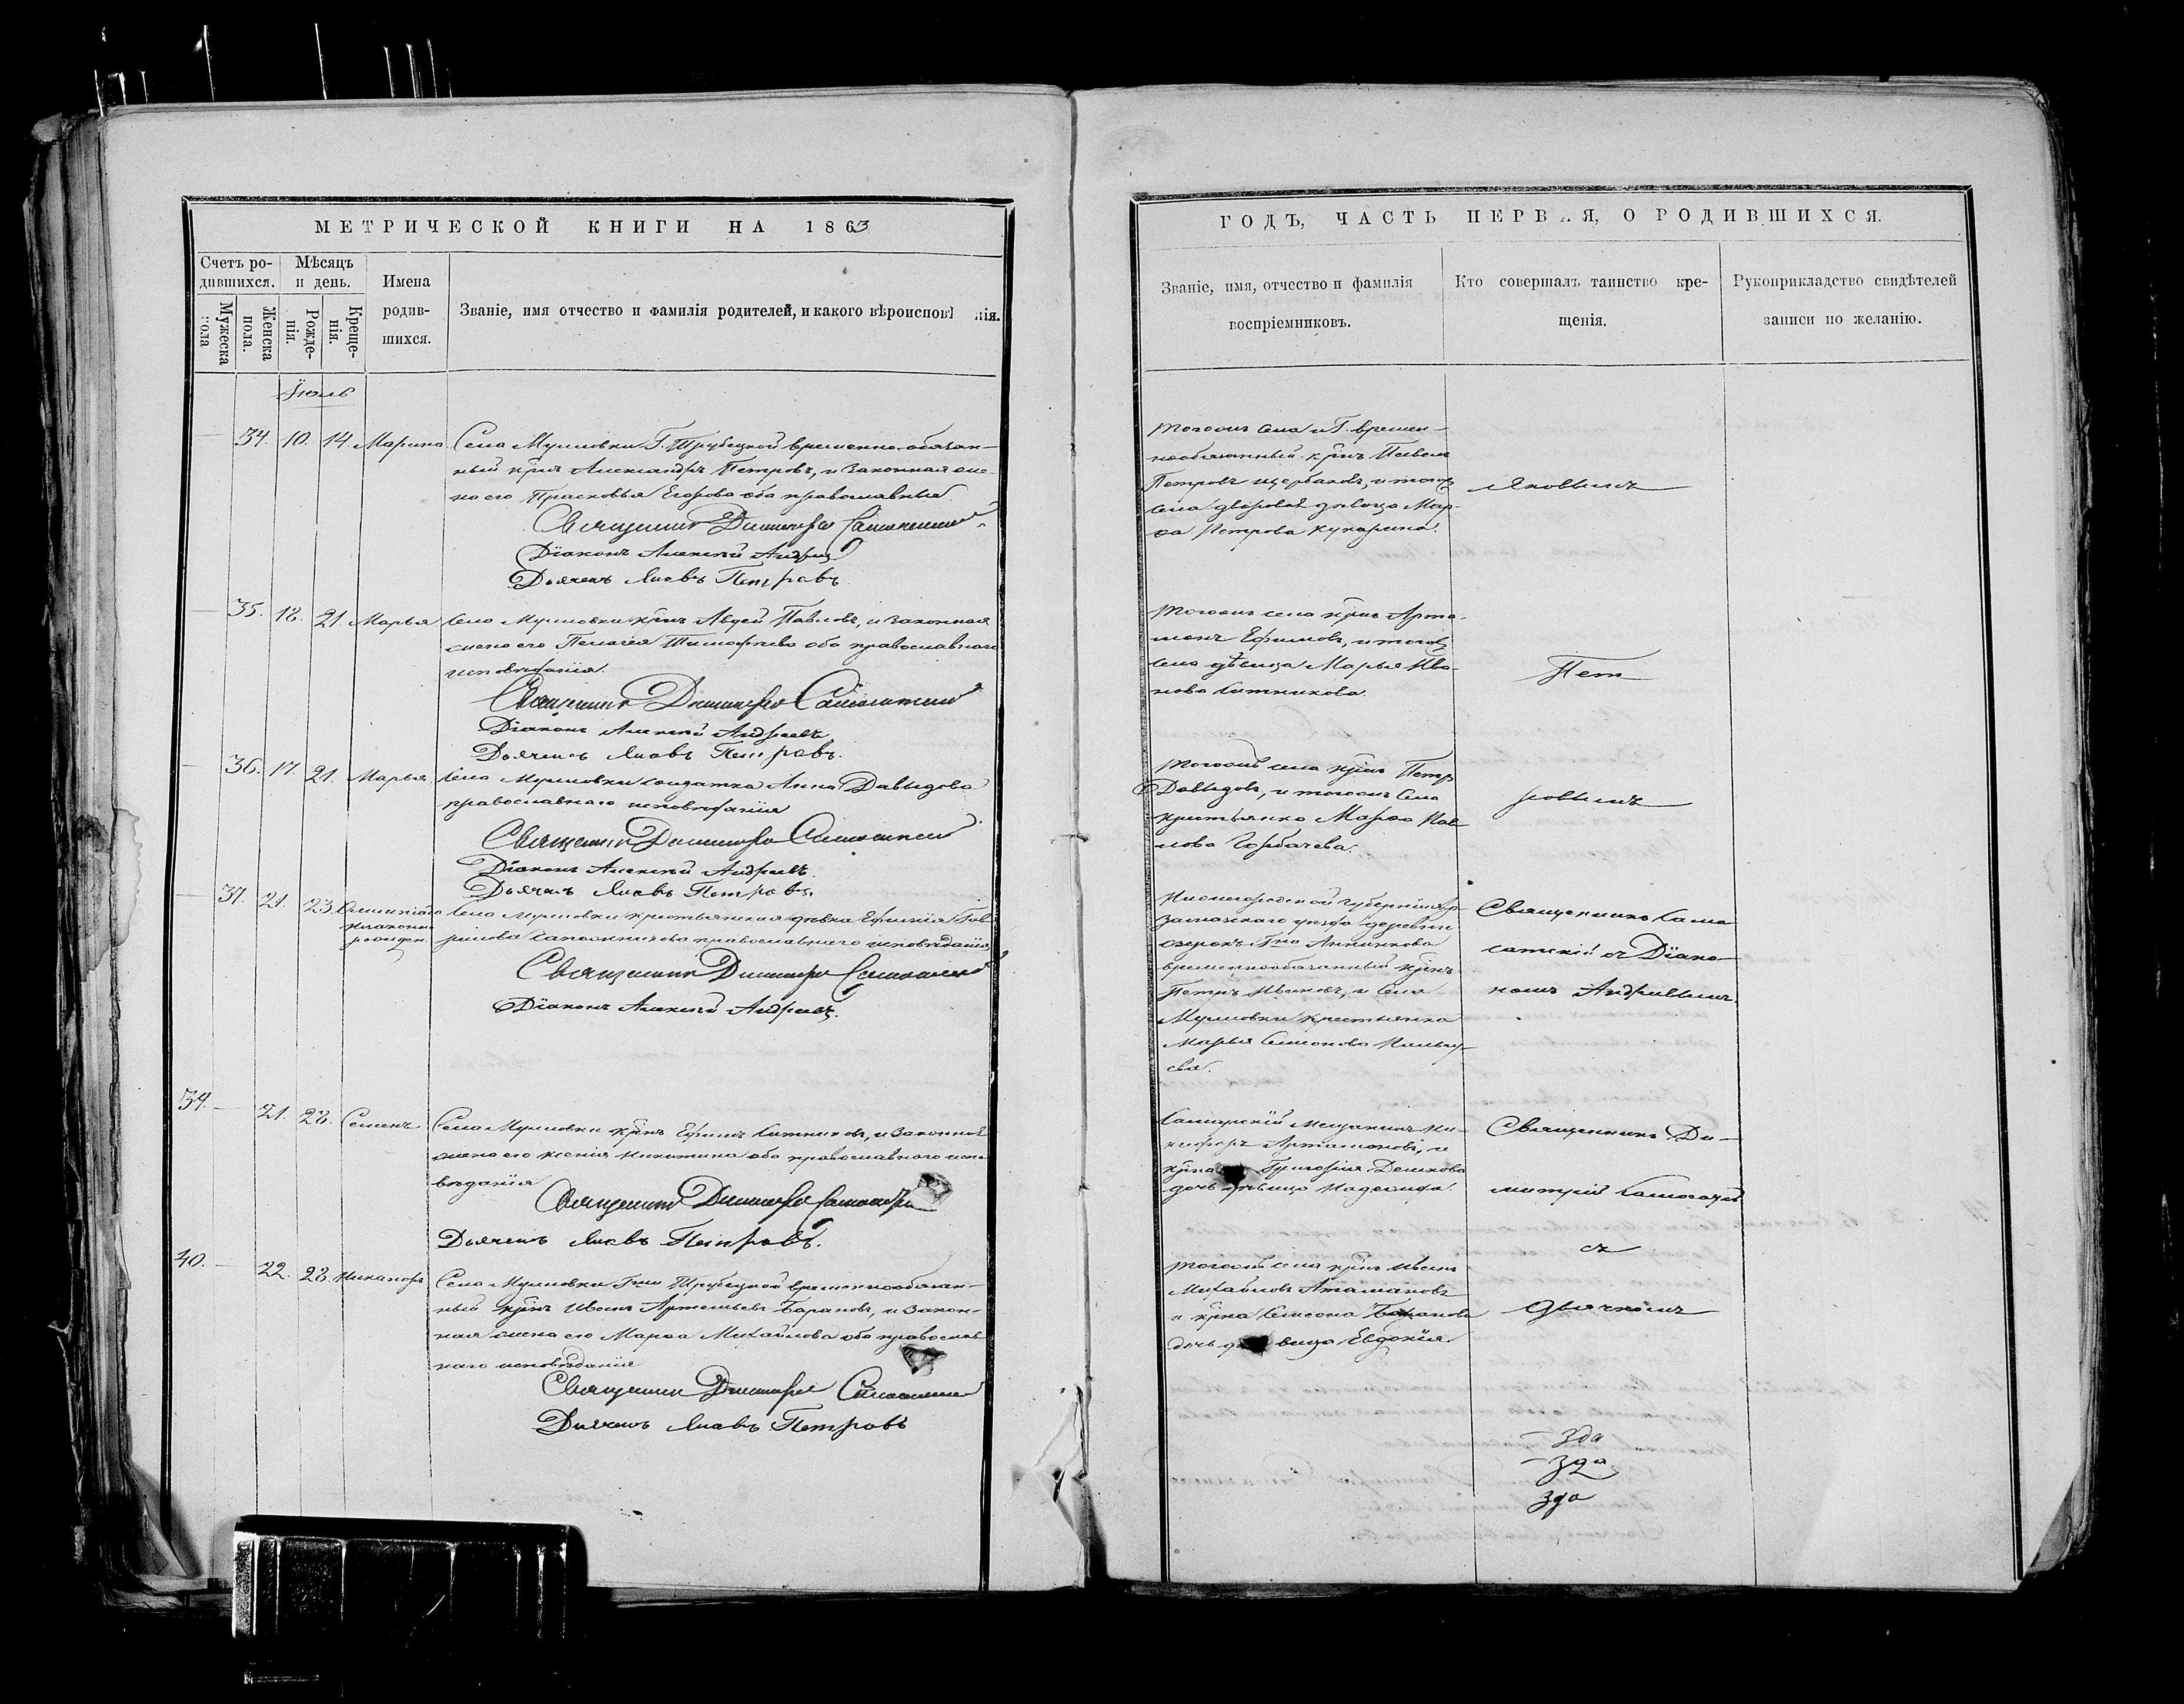 МЕТРИЧЕСКОЙ КНИГИ НА 1863
Счетъ ро-
дившихся.
Мѣсяцъ
и день.
Мужеска
пола
Женска
пола.
Рожде-
нія.
Креще-
нія.
Имена
родив-
шихся.
Званіе, имя отчество и фамилія родителей, и какого вѣроиспов нія.
Іюль
34. 10. 14 Марина Села Муловки Г. Трубецкой временно-обязан-
ный крнъ Александръ Петровъ, и законная же-
на его Прасковья Егорова оба православные
Священникъ Димитрій
Діаконъ Алексѣй
Дьячекъ Яковъ Петровъ
35. 18. 21. Марья Села Муловки крнъ Авдей Павловъ, и законная
жена его Пелагея Тимофѣева оба православнаго
исповѣданія.
Священникъ Димитрій
Діаконъ Алексѣй Андреевъ
Дьячекъ Яковъ Петровъ.
36. 17. 21. Марья. Села Муловки солдатка Анна Давыдова
православнаго исповѣданія
Священникъ Димитрій
Діаконъ Алексѣй Андреевъ.
Дьячекъ Яковъ Петровъ.
37. 21. 23. Села Муловки крестьянская дѣвка Гав
рилова православнаго исповѣданія
Священникъ Димитрій
Діаконъ Алексѣй Андреевъ.
39. 21. 28. Семенъ Села Муловки крнъ Ефимъ Ситниковъ, и законная
жена его Ксенія Никитина оба православнаго испо
вѣданія
Священникъ Димитрій
Дьячекъ Яковъ Петровъ.
40. 22. 28. Никаноръ Села Муловки Трубецкой временнообязан-
ный крнъ Иванъ Артемьевъ Барановъ, и закон-
ная жена его Марфа Михайлова оба православ
наго исповѣданія
Священникъ Димитрій
Дьячекъ Яковъ Петровъ
ГОДЪ, ЧАСТЬ ПЕРВАЯ, О РОДИВШИХСЯ.
Званіе, имя, отчество и фамилія
воспріемниковъ.
Кто совершалъ таинство кре-
щенія.
Рукоприкладство свидѣтелей
записи по желанію.
Тогожъ села и Г. времен-
нообязанный крнъ Павелъ
Петровъ Щербаковъ, и тогожъ
села дворовая дѣвица Мар-
фа Петрова Кухарина.
Яковымъ
Тогожъ села крнъ Арта-
монъ Ефимовъ, и тогожъ
села дѣвица Марья Ива-
нова Ситникова.
Пет
Тогожъ села крнъ Петръ
Давыдовъ, и тогожъ села
крестьянка Марфа Пав
лова Горбачева.
ровымъ
Нижегородской губерніи Ар-
замаскаго уѣзда деревни
Озерокъ Анненкова
временнообязанный крнъ
Петръ Ивановъ, и села
Муловки крестьянка
Марья Семенова
ева.
Священникъ Само
латскій съ Діако-
номъ Андреевымъ.
Самарскій мещанинъ Ни-
кифоръ Артамоновъ, и
крна Григорія
дочь дѣвица
Священникъ Ди-
митрій
съ
Тогожъ села крнъ Иванъ
Михайловъ Аташановъ
и крна Семена Баранова
дочь дѣвица Евдокія.
дьячкомъ
- 3да
- 3да
3да